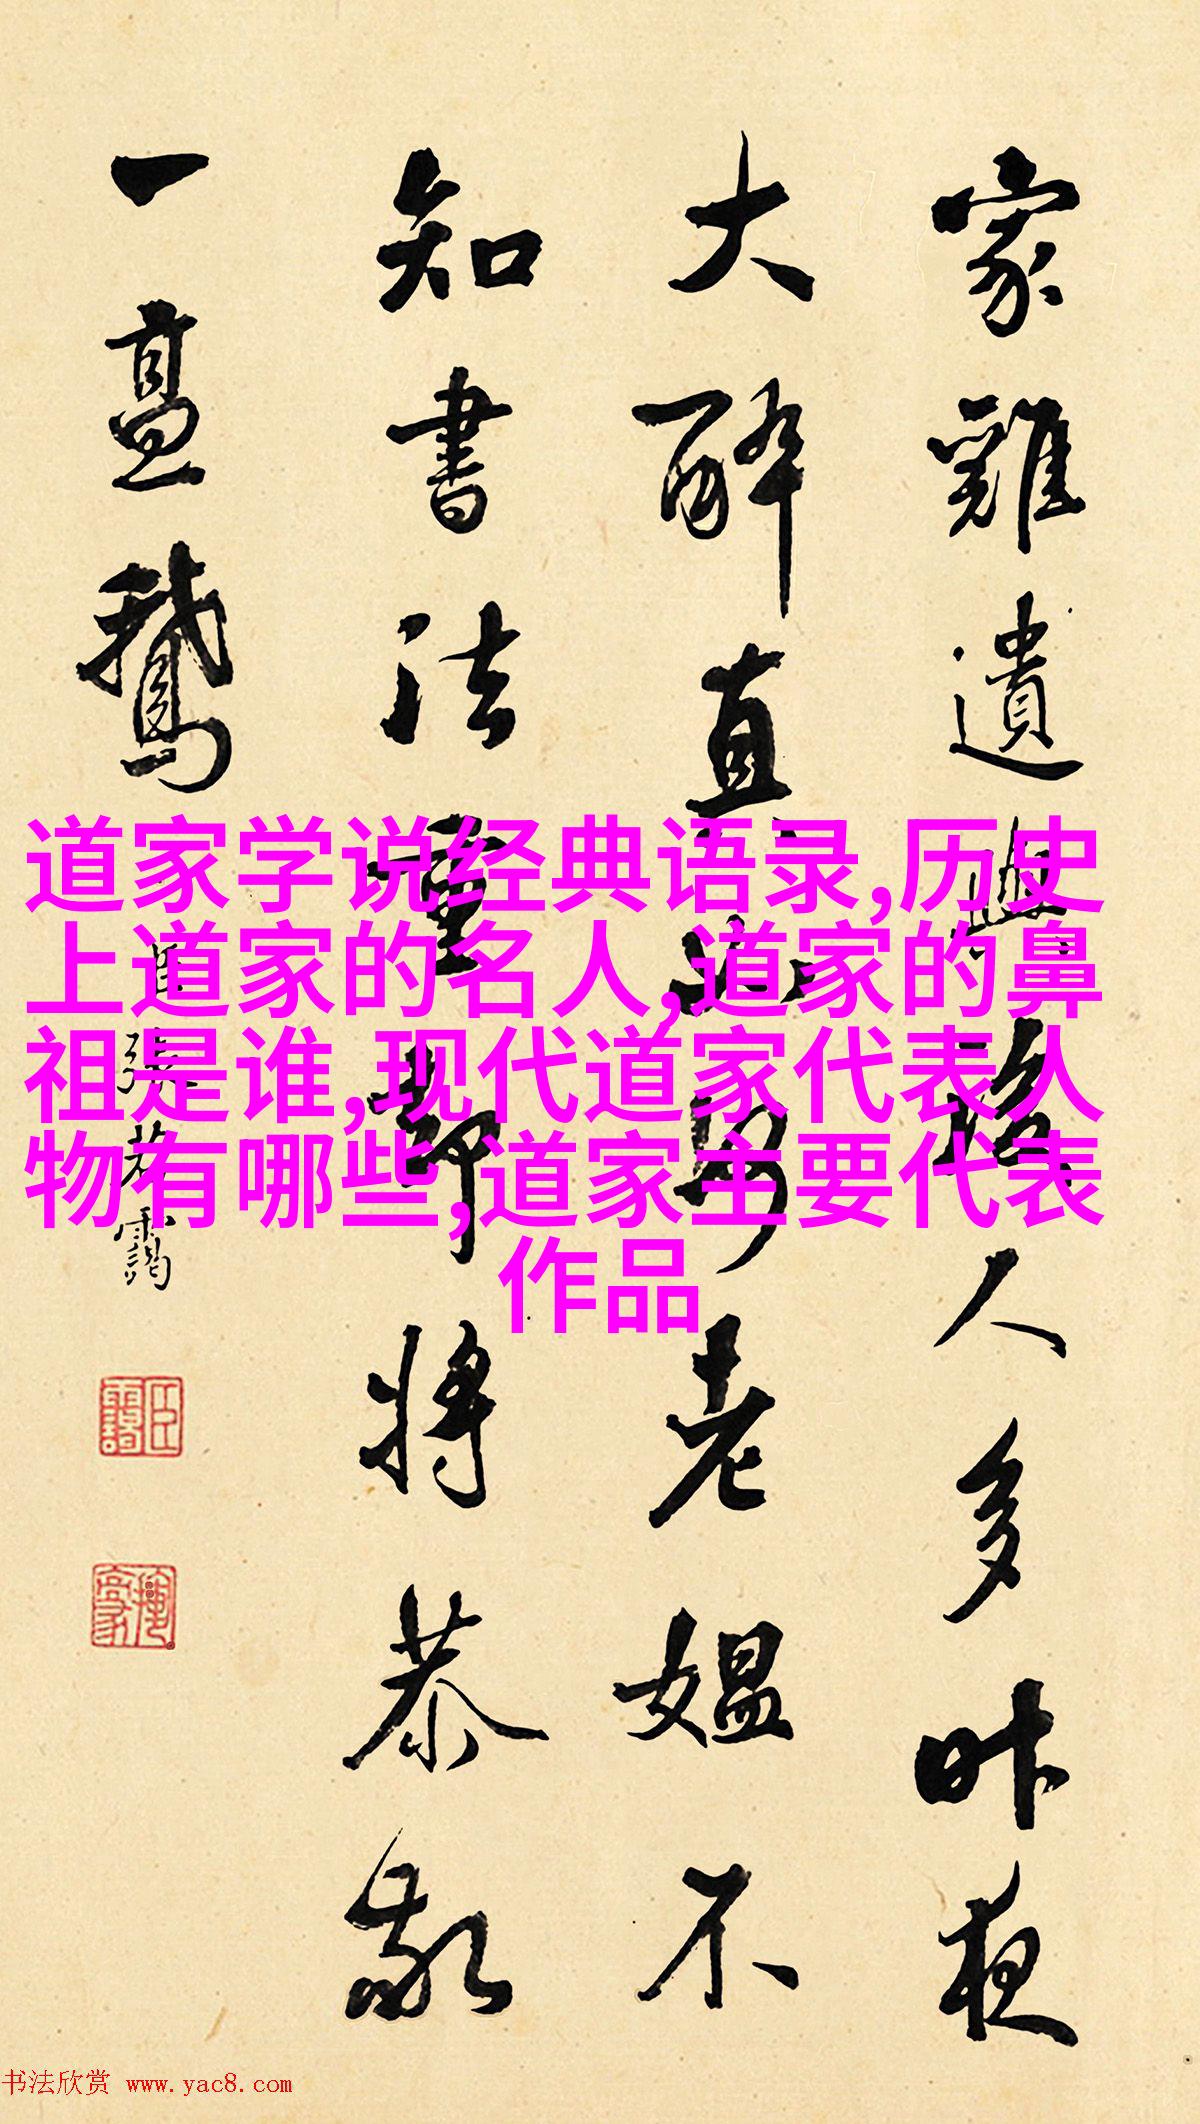 家雞遺人多昨夜
大醉直老媼不
知書法重將恭敬
一鵞
張若靄
道家学说经典语录,历史
上道家的名人,道家的鼻
祖是谁,现代道家代表人
物有哪些,道家主要代表
作品
书法欣赏 www.yac8.com